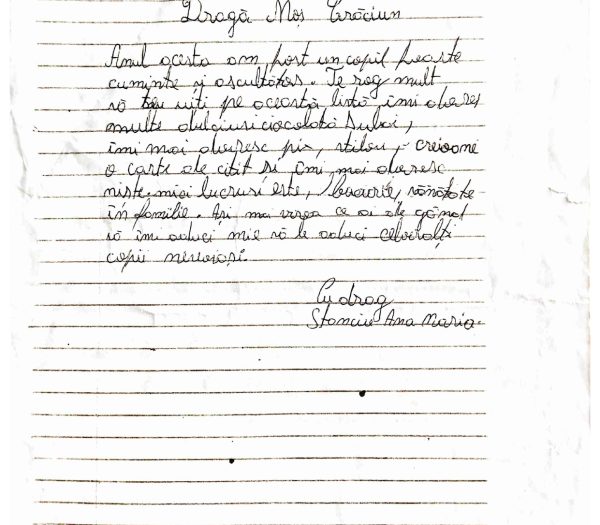 Dragă Moș Crăciun
Anul acesta am fost un copil foarte
cuminte și ascultător. Te rog mult
să te uiți pe această listă îmi doresc
multe dulciuri ciocolată Dubai,
îmi mai doresc pix, stilou, creioane
o carte de citit și îmi mai doresc
niște mici lucruri este, bucurie, sănătate
în familie. Ași mai vrea ce ai de gând
să îmi aduci mie să le aduci celorlalți
copii nevoiași.
Cu drag
Stanciu Ana Maria